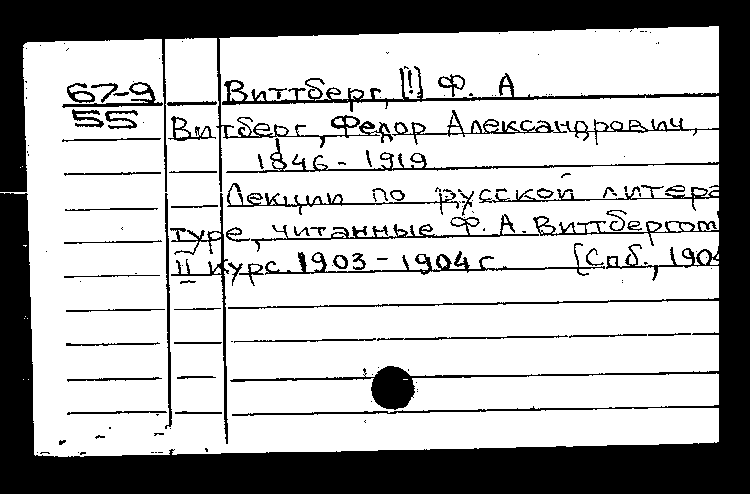 67-9 Виттберг, [!] Ф. А
55
Витберг, Федор Александрович,
1846 - 1919
Лекции по русской литера
туре, читанные Ф. А. Виттбергом
II курс. 1903 - 1904 г. [Спб., 1904